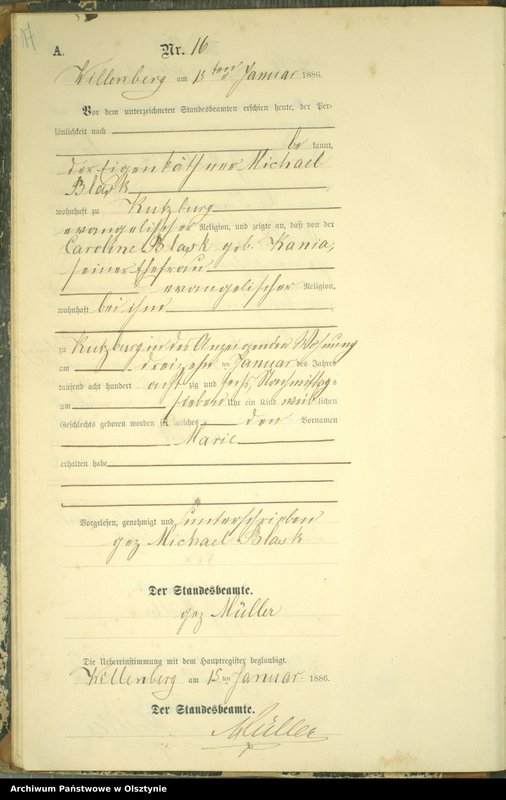 17
A. Nr. 16
Willenberg am 15ten Januar 1886.
Vor dem unterzeichneten Standesbeamten erschien heute, der Per-
sönlichkeit nach
be kannt,
der Eigenkäthner Michael
Blask
wohnhaft zu Kutzburg
evangelischer Religion, und zeigte an, daß von der
Caroline Blask geb. Kania,
seiner Ehefrau
evangelischer Religion,
wohnhaft bei ihm
zu Kutzburg in des Anzeigenden Wohnung
am dreizehn ten Januar des Jahres
tausend acht hundert acht zig und sechs Nachmittags
um sieben Uhr ein Kind weiblichen
Geschlechts geboren worden sei, welches den Vornamen
Marie
erhalten habe
Vorgelesen, genehmigt und unterschrieben
gez Michael Blask
Der Standesbeamte.
gez Müller
Die Uebereinstimmung mit dem Hauptregister beglaubigt.
Willenberg am 15ten Januar 1886.
Der Standesbeamte.
Müller
Archiwum Państwowe w Olsztynie